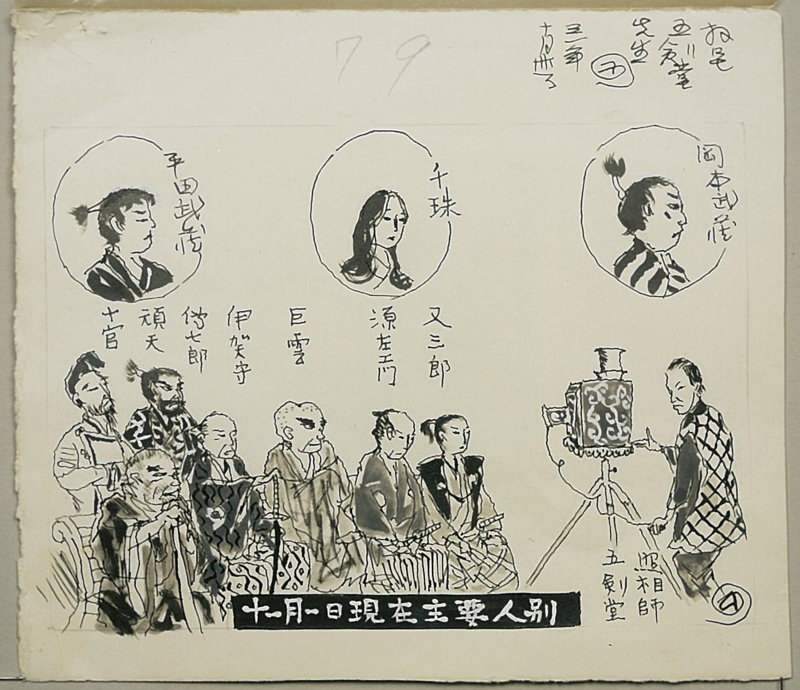 五剣堂
先生
79
岡本武蔵
千珠
平田武蔵
又三郎
源左エ門
巨雲
伊賀守
伝七郎
頑天
十官
照相師
五剣堂
十一月一日現在主要人別